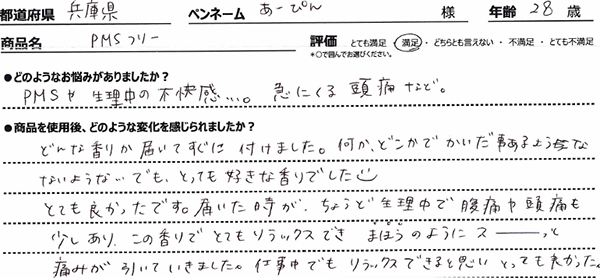 都道府県 兵庫県 ペンネーム あーぴん 様 年齢 28 歳
商品名 PMSフリー 評価 とても満足 ・ 満足 ・ どちらとも言えない ・ 不満足 ・ とても不満足
*○で囲んでお選びください。
●どのようなお悩みがありましたか？
PMSや生理中の不快感…。急にくる頭痛など。
●商品を使用後、どのような変化を感じられましたか？
どんな香りか届いてすぐに付けました。何か、どこかでかいだ事あるような
ないようないでも、とっても好きな香りでした
とても良かったです。届いた時が、ちょうど生理中で腹痛や頭痛も
少しあり、この香りでとてもリラックスでき まほうのようにスーーっと
痛みが引いていきました。仕事中でもリラックスできると思いとっても良かった。